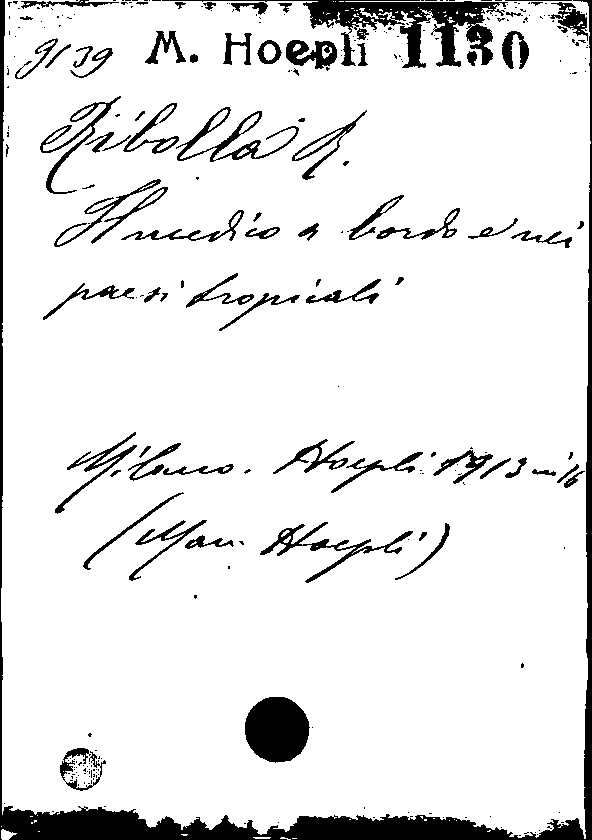 91 39 M. Hoepli 1130
Ribolla R.
Il medico a bordo e nei
paesi tropicali
Milano. Hoepli 1913 in 16
(Man. Hoepli)